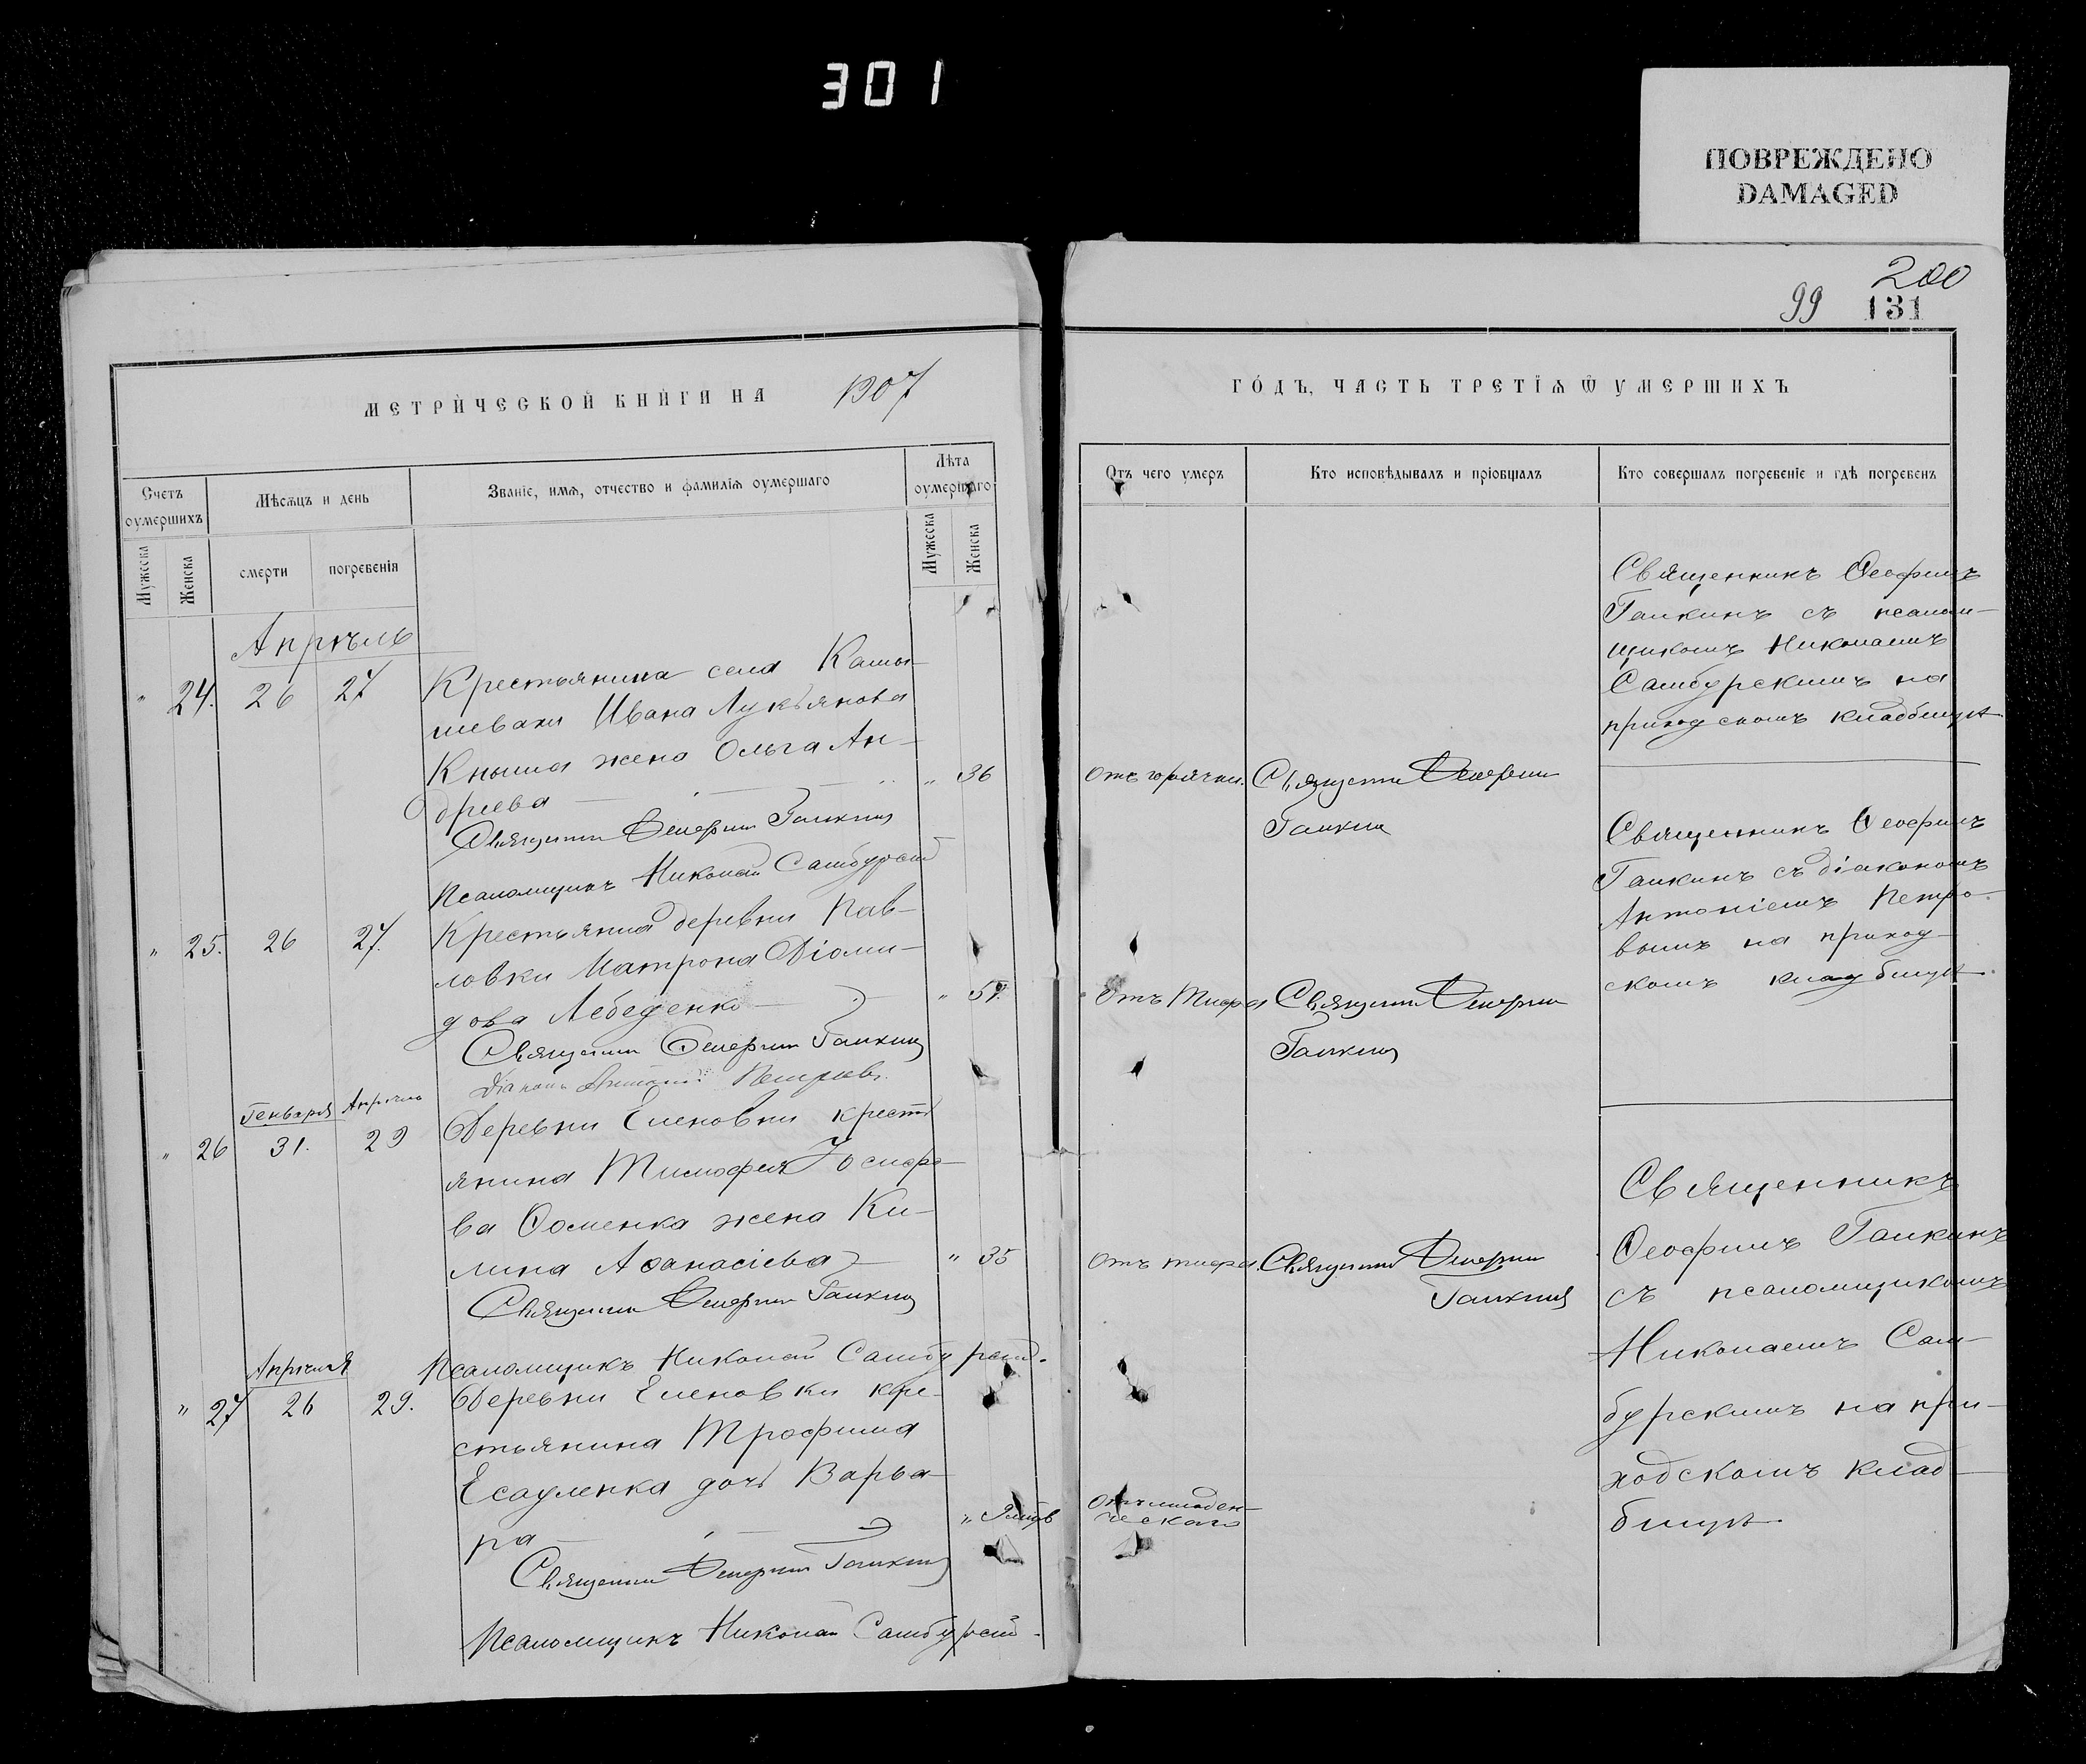 301
ПОВРЕЖДЕНО
DAMAGED
200
99 131
МЕТРИЧЕСКОЙ КНИГИ НА 1907
ГОДЪ, ЧАСТЬ ТРЕТІѦ Ѿ УМЕРШИХЪ
Счетъ оумершихъ
Мѣсѧцъ и день
Званіе, имѧ, отчество и фамиліѧ оумершаго
Лѣта оумершаго
Мужеска
Женска
смерти
погребенія
Мужеска
Женска
Отъ чего умеръ
Кто исповѣдывалъ и пріобщалъ
Кто совершалъ погребеніе и гдѣ погребенъ
Апрѣль
" 24. 26 27
Крестьянина села Камы-
шевахи Ивана Лукьянова
Кныша жена Ольга Ан-
дреева " 36
Священникъ Ѳеофилъ Галкинъ
Псаломщикъ Николай Самбурскій
Отъ горячки.
Священникъ Ѳеофилъ
Галкинъ
Священникъ Ѳеофилъ
Галкинъ съ псалом-
щикомъ Николаемъ
Самбурскимъ на
приходскомъ кладбищѣ
" 25. 26 27.
Крестьянка деревни Пав-
ловки Матрона Діоми-
дова Лебеденко "
Священникъ Ѳеофилъ Галкинъ
Діаконъ Антоній Петровъ.
Отъ тифа
Священникъ Ѳеофилъ
Галкинъ
Священникъ Ѳеофилъ
Галкинъ съ діакономъ
Антоніемъ Петро-
вымъ на приход-
скомъ кладбищѣ.
Генваря Апрѣль
" 26 31. 29
Деревни Еленовки кресть
янина Тимофея Іосифо-
ва Ѳоменка жена Ки-
лина Аѳанасіева " 35
Священникъ Ѳеофилъ Галкинъ
Псаломщикъ Николай Самбурскій.
Отъ тифа.
Священникъ Ѳеофилъ
Галкинъ
Священникъ
Ѳеофилъ Галкинъ
съ псаломщикомъ
Николаемъ Сам-
бурскимъ на при-
ходскомъ клад-
бищѣ.
Апрѣля
" 27 26 29.
Деревни Еленовки кре-
стьянина Трофима
Есауленка дочь Варва-
ра
Священникъ Ѳеофилъ Галкинъ
Псаломщикъ Николай Самбурскій.
Отъ младен-
ческаго